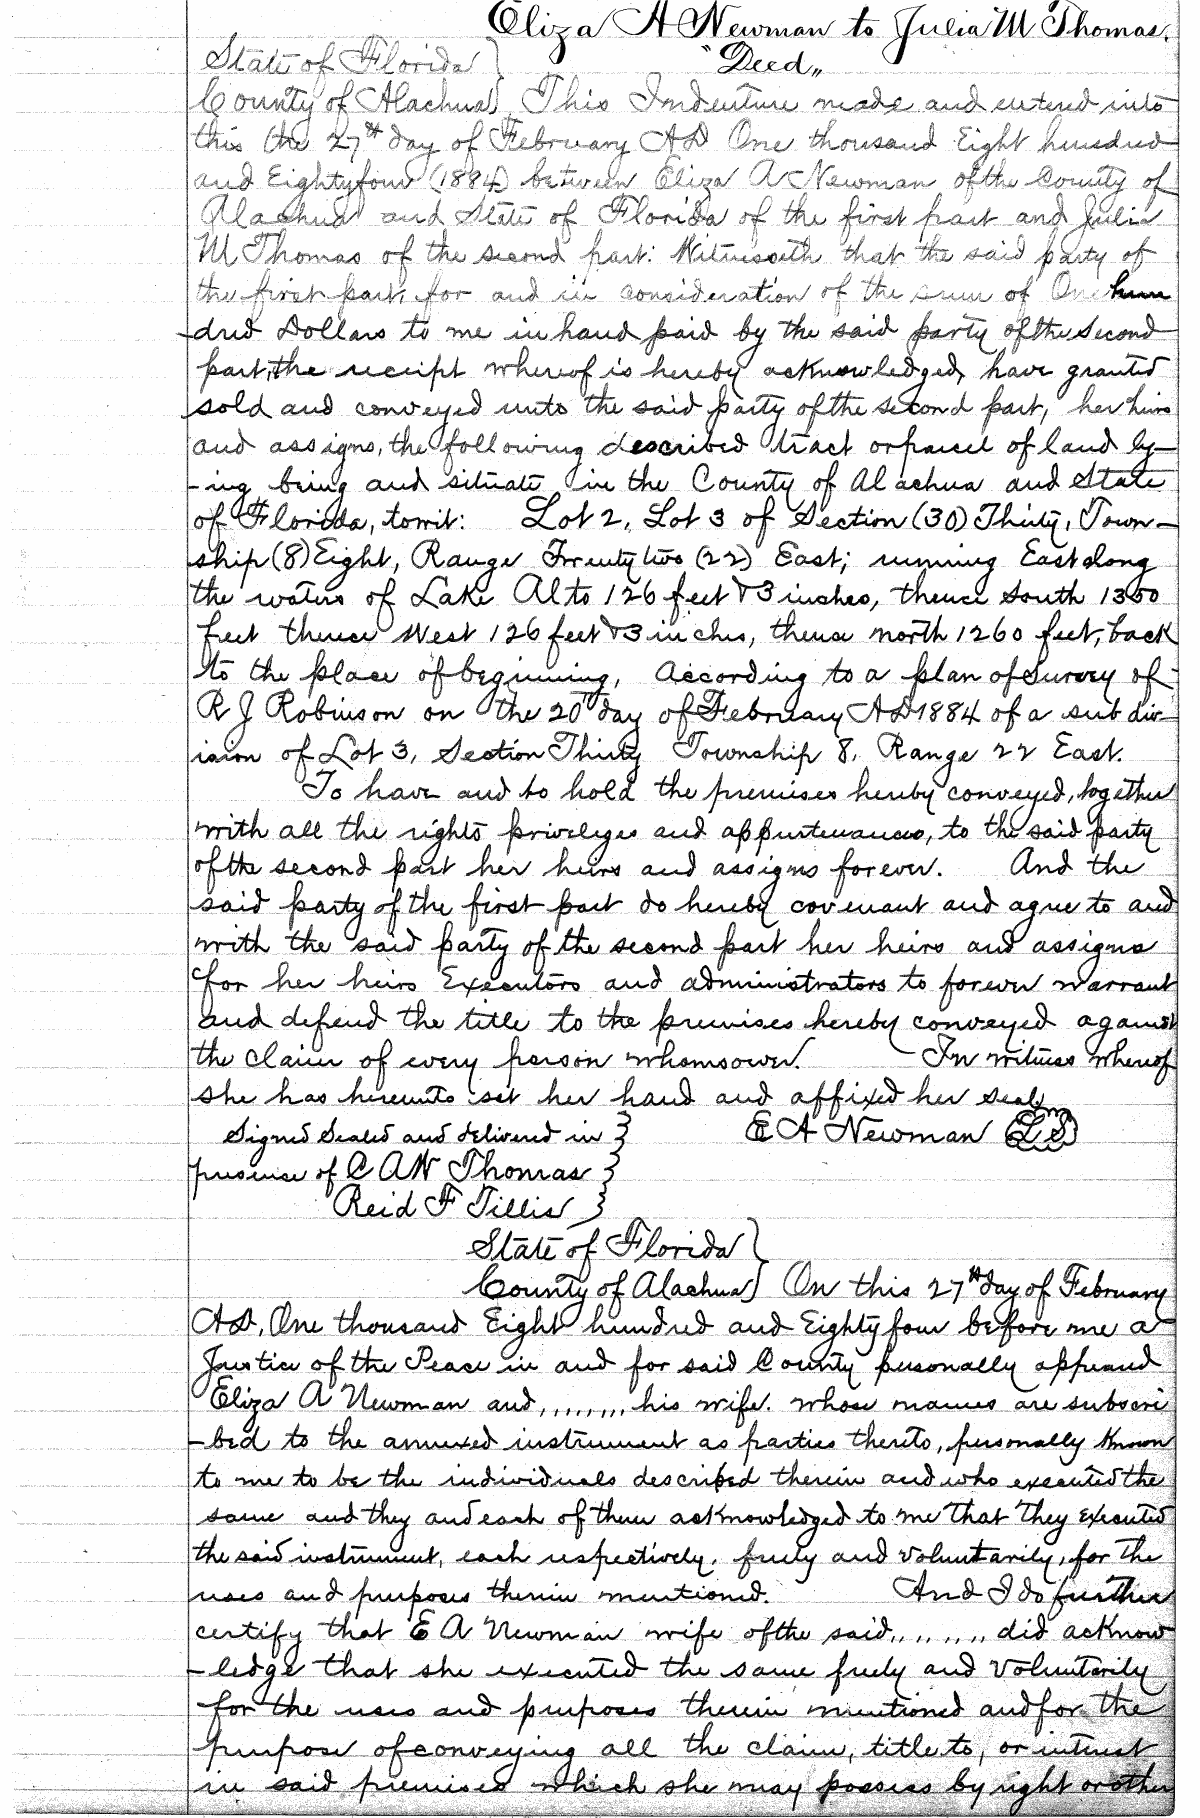 Eliza A Newman to Julia M Thomas.
State of Florida } "Deed"
County of Alachua } This Indenture made and entered into
this the 27th day of February AD One thousand Eight hundred
and Eightyfour (1884) between Eliza A Newman of the County of
Alachua and State of Florida of the first part and Julia
M Thomas of the second part: Witnesseth that the said party of
the first part, for and in consideration of the sum of One hun
dred Dollars to me in hand paid by the said party of the Second
part, the receipt whereof is hereby acknowledged, have granted
sold and conveyed unto the said party of the second part, her heirs
and assigns, the following described tract or parcel of land ly-
-ing being and situate in the County of Alachua and State
of Florida, towit: Lot 2, Lot 3 of Section (30) Thirty, Town-
ship (8) Eight, Range Twenty two (22) East; running East along
the waters of Lake Alto 126 feet & 3 inches, thence South 1300
feet thence West 126 feet & 3 inches, thence north 1260 feet, back
to the place of beginning, according to a plan of Survey of
R J Robinson on the 20th day of February AD 1884 of a sub div-
ision of Lot 3, Section Thirty Township 8, Range 22 East.
To have and to hold the premises hereby conveyed, together
with all the rights privileges and appurtenances, to the said party
of the second part her heirs and assigns forever. And the
said party of the first part do hereby covenant and agree to and
with the said party of the second part her heirs and assigns
for her heirs Executors and administrators to forever warrant
and defend the title to the premises hereby conveyed against
the claim of every person whomsoever. In witness whereof
she has hereunto set her hand and affixed her seal
Signed Sealed and delivered in } E A Newman LS
presence of C A W Thomas }
Reid F Tillis }
State of Florida }
County of Alachua } On this 27th day of February
AD, One thousand Eight hundred and Eighty four before me a
Justice of the Peace in and for said County personally appeared
Eliza A Newman and,,,,,,,, his wife. whose names are subscri
-bed to the annexed instrument as parties thereto, personally known
to me to be the individuals described therein and who executed the
same and they and each of them acknowledged to me that They Executed
the said instrument, each respectively, freely and voluntarily, for the
uses and purposes therein mentioned. And I do further
certify that E A Newman wife of the said,,,,,,, did acknow
-ledge that she executed the same freely and voluntarily
for the uses and purposes therein mentioned and for the
purpose of conveying all the claim, title to, or interest
in said premises which she may possess by right or other